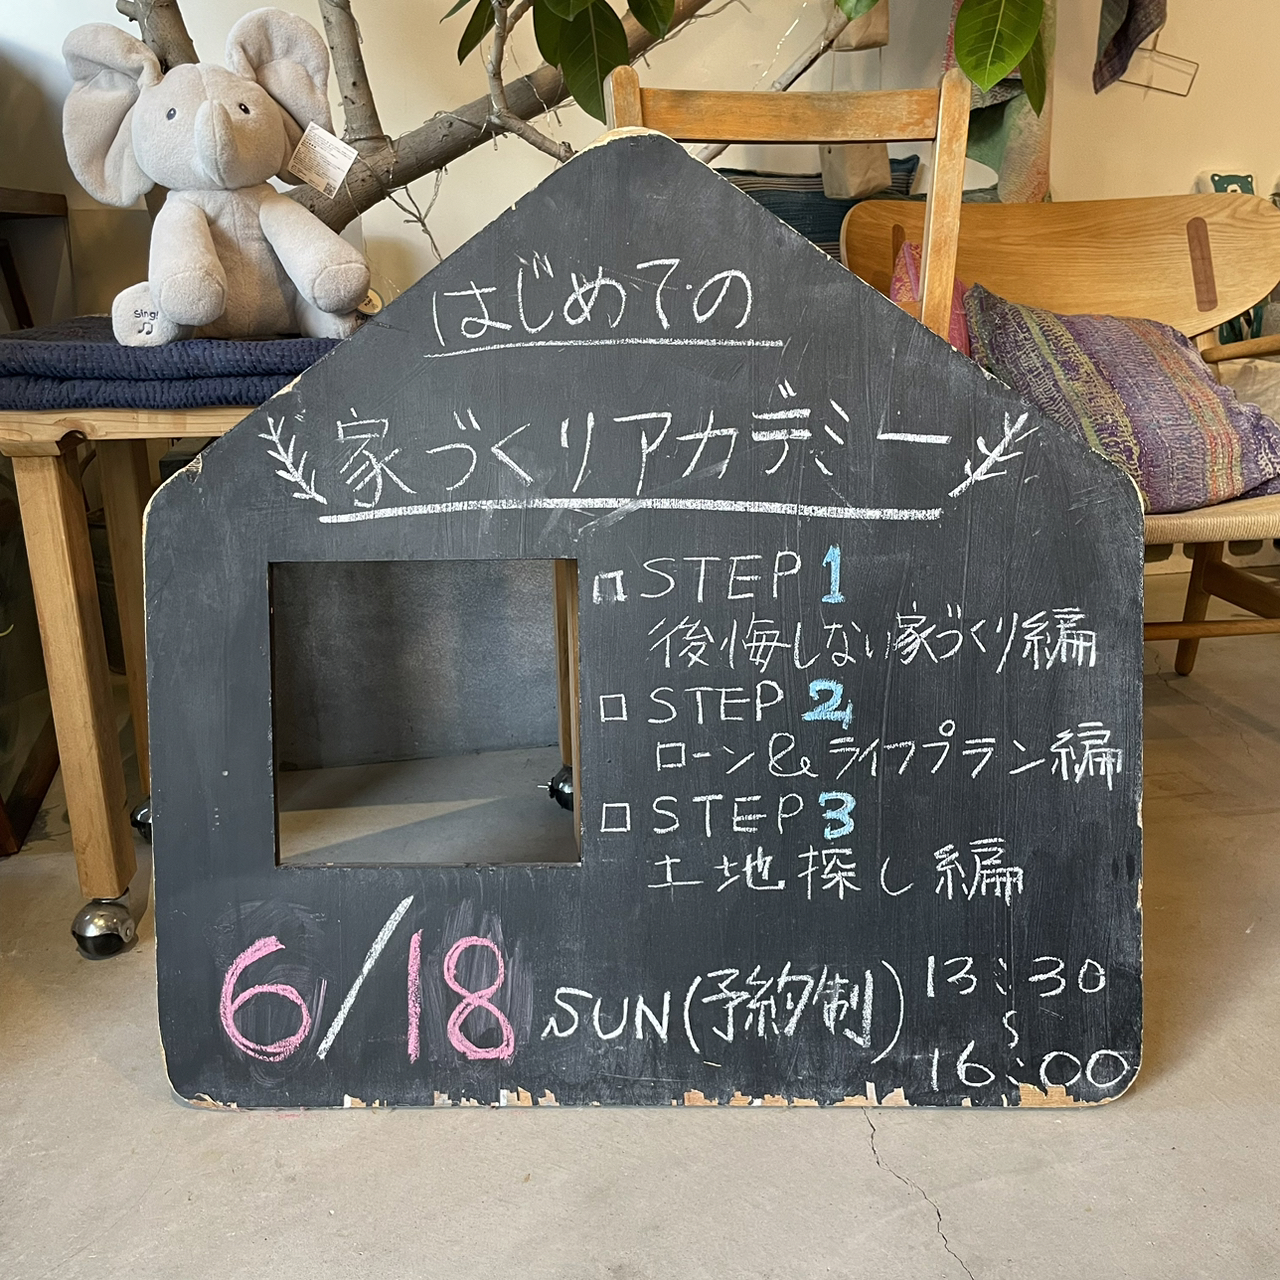 はじめての
家づくりアカデミー
□ STEP 1
後悔しない家づくり編
□ STEP 2
ローン&ライフプラン編
□ STEP 3
土地探し編
6/18 SUN(予約制) 13:30
〜
16:00
Sing!